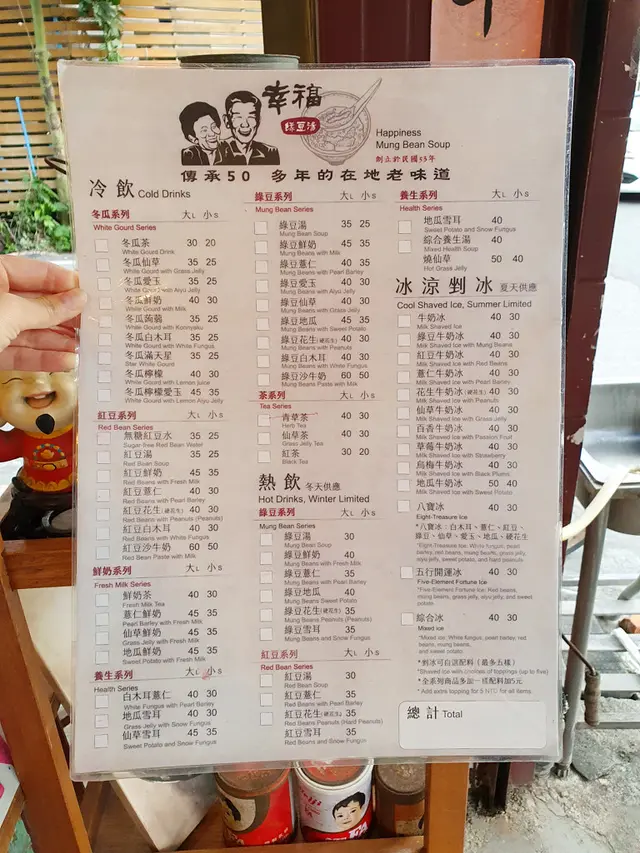 幸福
綠豆湯
Happiness
Mung Bean Soup
創立於民國53年
傳承50 多年的在地老味道
冷飲 Cold Drinks
冬瓜系列 大L 小S
White Gourd Series
冬瓜茶 30 20
White Gourd Drink
冬瓜仙草 35 25
White Gourd with Grass Jelly
冬瓜愛玉 35 25
White Gourd with Aiyu Jelly
冬瓜鮮奶 40 30
White Gourd with Milk
冬瓜蒟蒻 35 25
White Gourd with Konnyaku
冬瓜白木耳 35 25
White Gourd with White Fungus
冬瓜滿天星 35 25
Star White Gourd
冬瓜檸檬 40 30
White Gourd with Lemon juice
冬瓜檸檬愛玉 45 35
White Gourd with Lemon Aiyu Jelly
紅豆系列
Red Bean Series
無糖紅豆水 35 25
Sugar-free Red Bean Water
紅豆湯 35 25
Red Bean Soup
紅豆鮮奶 45 35
Red Beans with Fresh Milk
紅豆薏仁 40 30
Red Beans with Pearl Barley
紅豆花生(硬花生) 40 30
Red Beans with Peanuts (Peanuts)
紅豆白木耳 40 30
Red Beans with White Fungus
紅豆沙牛奶 60 50
Red Bean Paste with Milk
鮮奶系列 大L 小S
Fresh Milk Series
鮮奶茶 40 30
Fresh Milk Tea
薏仁鮮奶 45 35
Pearl Barley with Fresh Milk
仙草鮮奶 45 35
Grass Jelly with Fresh Milk
地瓜鮮奶 45 35
Sweet Potato with Fresh Milk
養生系列 大L 小S
Health Series
白木耳薏仁 40 30
White Fungus with Pearl Barley
地瓜雪耳 40 30
Grass Jelly with Snow Fungus
仙草雪耳 45 35
Sweet Potato and Snow Fungus
綠豆系列 大L 小S
Mung Bean Series
綠豆湯 35 25
Mung Bean Soup
綠豆鮮奶 45 35
Mung Beans with Milk
綠豆薏仁 40 30
Mung Beans with Pearl Barley
綠豆愛玉 40 30
Mung Beans with Aiyu Jelly
綠豆仙草 40 30
Mung Beans with Grass Jelly
綠豆地瓜 45 35
Mung Beans with Sweet Potato
綠豆花生(硬花生) 40 30
Mung Beans with Peanuts
綠豆白木耳 40 30
Mung Beans with White Fungus
綠豆沙牛奶 60 50
Mung Beans Paste with Milk
茶系列 大L 小S
Tea Series
青草茶 40 30
Herb Tea
仙草茶 40 30
Grass Jelly Tea
紅茶 30 20
Black Tea
熱飲 冬天供應
Hot Drinks, Winter Limited
綠豆系列 大L 小S
Mung Bean Series
綠豆湯 30
Mung Bean Soup
綠豆鮮奶 40
Mung Beans with Milk
綠豆薏仁 35
Mung Beans with Pearl Barley
綠豆地瓜 40
Mung Beans Sweet Potato
綠豆花生(硬花生) 35
Mung Beans Peanuts (Peanuts)
綠豆雪耳 35
Mung Beans and Snow Fungus
紅豆系列 大L 小S
Red Bean Series
紅豆湯 30
Red Bean Soup
紅豆薏仁 35
Red Beans with Pearl Barley
紅豆花生(硬花生) 35
Red Beans Peanuts (Hard Peanuts)
紅豆雪耳 35
Red Beans and Snow Fungus
養生系列 大L 小S
Health Series
地瓜雪耳 40
Sweet Potato and Snow Fungus
綜合養生湯 40
Mixed Health Soup
燒仙草 50 40
Hot Grass Jelly
冰涼剉冰 夏天供應
Cool Shaved Ice, Summer Limited
牛奶冰 40 30
Milk Shaved Ice
綠豆牛奶冰 40 30
Milk Shaved Ice with Mung Beans
紅豆牛奶冰 40 30
Milk Shaved Ice with Red Beans
薏仁牛奶冰 40 30
Milk Shaved Ice with Pearl Barley
花生牛奶冰(硬花生) 40 30
Milk Shaved Ice with Peanuts
仙草牛奶冰 40 30
Milk Shaved Ice with Grass Jelly
百香牛奶冰 40 30
Milk Shaved Ice with Passion Fruit
草莓牛奶冰 40 30
Milk Shaved Ice with Strawberry
烏梅牛奶冰 40 30
Milk Shaved Ice with Black Plums
地瓜牛奶冰 50 40
Milk Shaved Ice with Sweet Potato
八寶冰 40 30
Eight-Treasure Ice
*八寶冰：白木耳、薏仁、紅豆、
綠豆、仙草、愛玉、地瓜、硬花生
*Eight-Treasure Ice: White fungus, pearl
barley, red beans, mung beans, grass
jelly, aiyu jelly, sweet potato, and hard peanuts
五行開運冰 40 30
Five-Element Fortune Ice
*Five-Element Fortune Ice: Red beans,
mung beans, grass jelly, aiyu jelly, and sweet
potato
綜合冰 40 30
Mixed Ice
*Mixed ice: White fungus, pearl barley, red
beans, mung beans,
and sweet potato
*剉冰可自選配料（最多五樣）
*Shaved Ice with choices of toppings (up to five)
*全系列商品多加一樣配料加5元
* Add extra topping for 5 NTD for all items
總計 Total